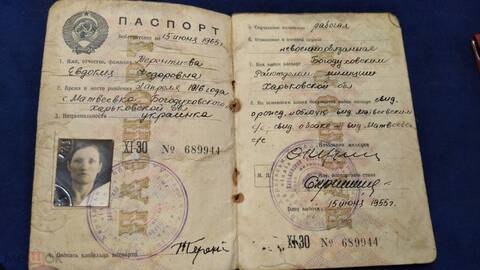 ПАСПОРТ
Действителен по 15 июня 1965 г.
1. Имя, отчество, фамилия
Евдокия Федоровна
2. Время и место рождения 1 апреля 1916 года
с. Матвеевка Богодуховского
Харьковской обл
3. Национальность украинка
XI-30 № 689944
4. Подпись владельца паспорта
5. Социальное положение рабочая
6. Отношение к военной службе
невоеннообязанная
7. Кем выдан паспорт Богодуховским
Райотделом милиции
Харьковской обл
8. На основании каких документов выдан паспорт свид.
о рожд. выд. Матвеевским
с/с, свид. о браке выд. Матвеевс
с/с
Начальник милиции
М. П.
Нач. паспортного стола
15 июня 1955 г.
XI-30 № 689944